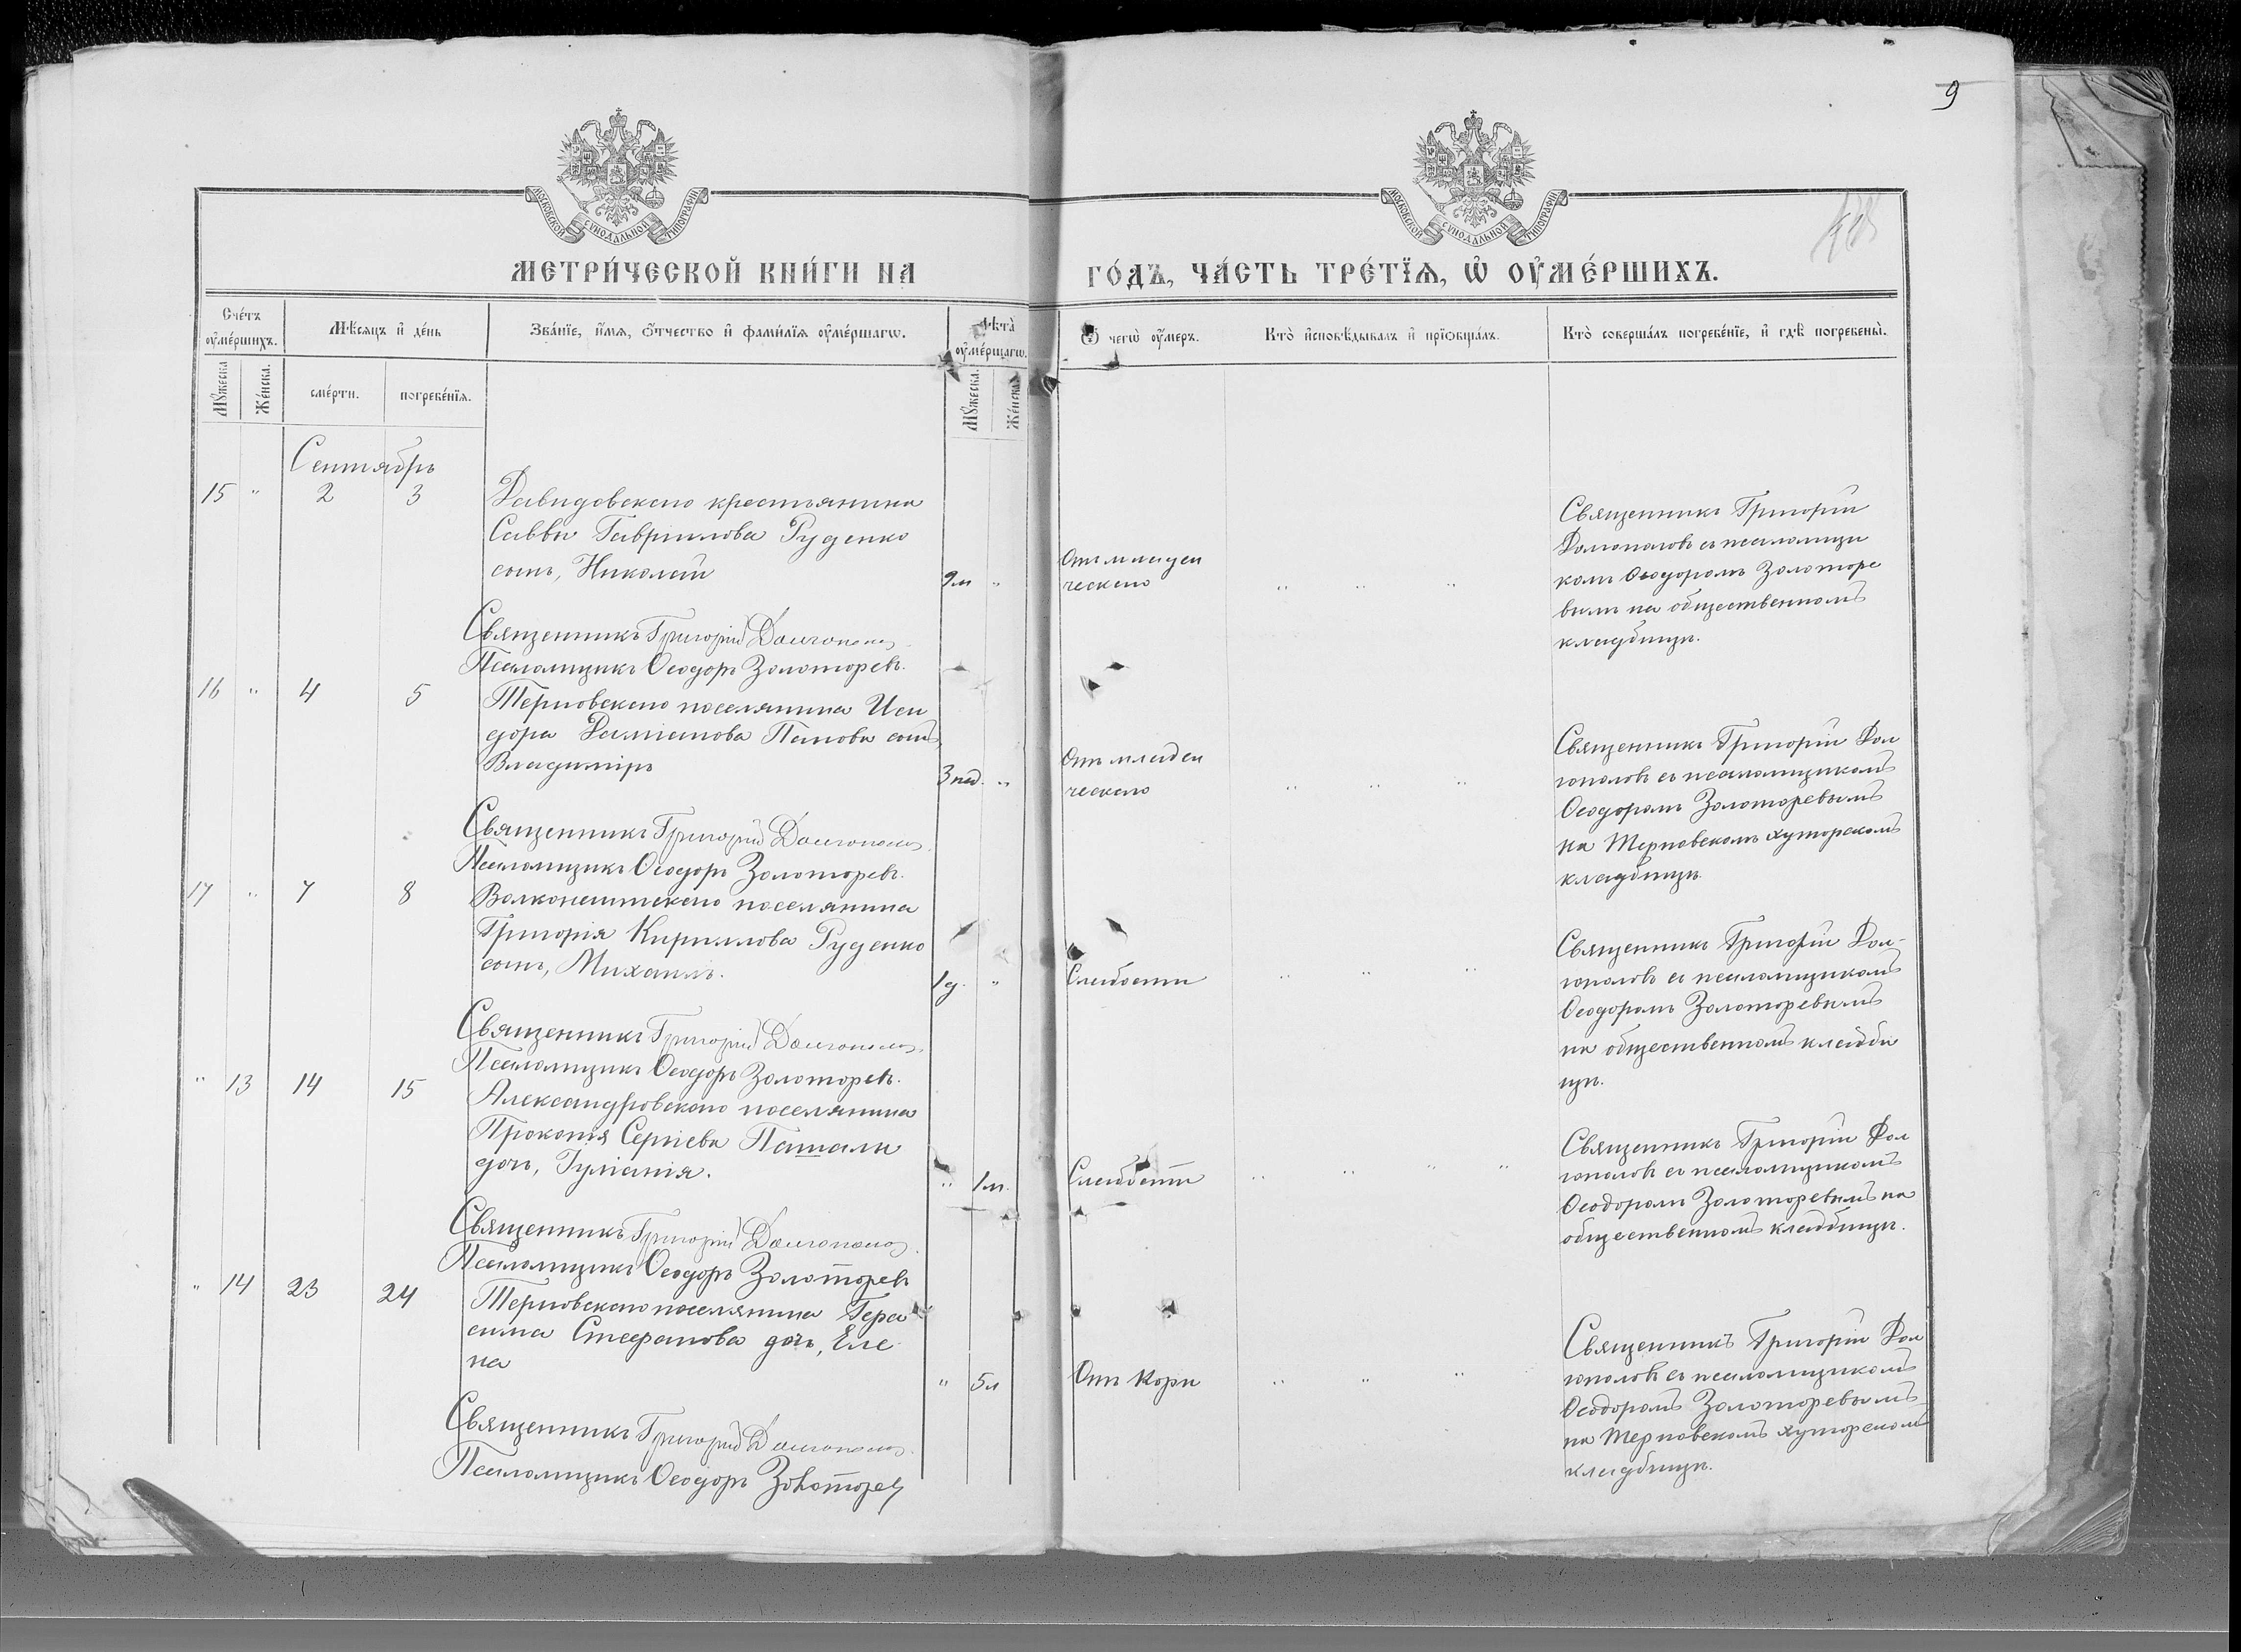 9
МОСКОВСКОЙ СѴНОДАЛЬНОЙ ТИПОГРАФІИ
МОСКОВСКОЙ СѴНОДАЛЬНОЙ ТИПОГРАФІИ
МЕТРИ́ЧЕСКОЙ КНИ́ГИ НА ГО́ДЪ, ЧА́СТЬ ТРЕ́ТЇѦ, Ѡ҆ ОУ҆МЕ́РШИХЪ.
Сче́тъ оу҆ме́ршихъ.
Мѣ́сѧцъ и҆ де́нь
Зва́нїе, и҆́мѧ, ѻ҆́тчество и҆ фами́лїѧ оу҆ме́ршагѡ.
Лѣ̀та оу҆ме́ршагѡ.
Ѿ чегѡ̀ оу҆́меръ.
Кто̀ и҆сповѣ́дывалъ и҆ прїѡбща́лъ.
Кто̀ соверша́лъ погребе́нїе, и҆ гдѣ̀ погребены̀.
Мꙋ́жеска.
Же́нска.
сме́рти.
погребе́нїѧ.
Мꙋ́жеска.
Же́нска.
Сентябрь
15 " 2 3
Давидовскаго крестьянина
Саввы Гаврилова Руденко
сынъ, Николай
9м "
Отъ младен
ческаго
" " "
Священникъ Григорій
Долгополовъ съ псаломщи
комъ Ѳеодоромъ Золоторе
вымъ на общественномъ
кладбищѣ.
Священникъ Григорій Долгополов
Псаломщикъ Ѳеодоръ Золоторевъ.
16 " 4 5
Терновскаго поселянина Иси
дора Даміанова Панова сынъ,
Владиміръ
3 нед. "
Отъ младен
ческаго
" " "
Священникъ Григорій Дол
гополовъ съ псаломщикомъ
Ѳеодоромъ Золоторевымъ
на Терновскомъ хуторскомъ
кладбищѣ.
Священникъ Григорій Долгополов
Псаломщикъ Ѳеодоръ Золоторевъ.
17 " 7 8
Волконештскаго поселянина
Григорія Кириллова Руденко
сынъ, Михаилъ.
1 г. "
Слабости
" " "
Священникъ Григорій Дол-
гополовъ съ псаломщикомъ
Ѳеодоромъ Золоторевымъ
на общественномъ кладби
щѣ.
Священникъ Григорій Долгополов.
Псаломщикъ Ѳеодоръ Золоторевъ.
" 13 14 15
Александровскаго поселянина
Прокопія Сергіева Пашалы
дочь, Іуліанія.
" 1м.
Слабости
" " " "
Священникъ Григорій Дол
гополовъ съ псаломщикомъ
Ѳеодоромъ Золоторевымъ на
общественномъ кладбищѣ.
Священникъ Григорій Долгополов.
Псаломщикъ Ѳеодоръ Золоторевъ
" 14 23 24
Терновскаго поселянина Гера
сима Стефанова дочь, Еле
на
" 5л
Отъ Кори
" " "
Священникъ Григорій Дол
гополовъ съ псаломщикомъ
Ѳеодоромъ Золоторевымъ
на Терновскомъ хуторскомъ
кладбищѣ.
Священникъ Григорій Долгополов.
Псаломщикъ Ѳеодоръ Золоторев